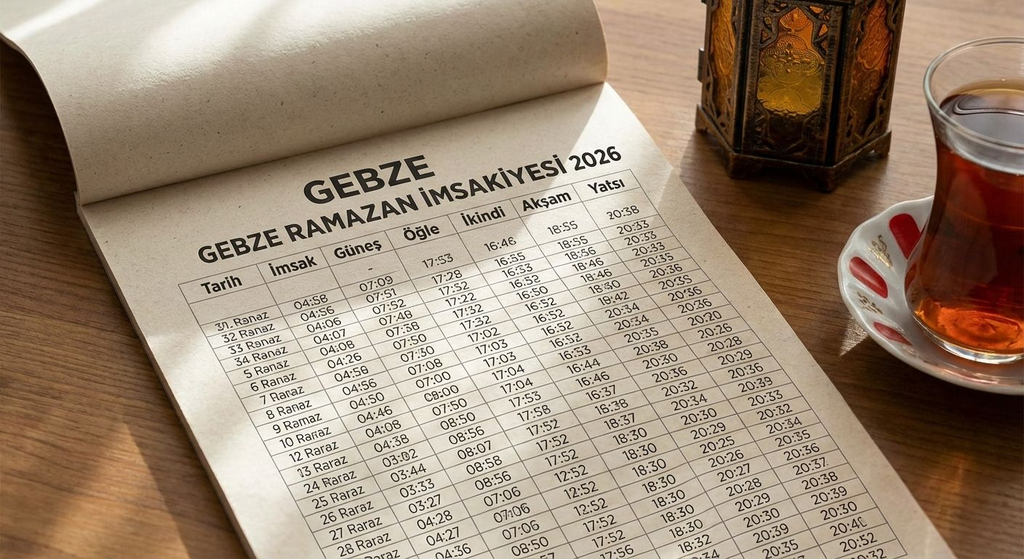 GEBZE
GEBZE RAMAZAN İMSAKİYESİ 2026
Tarih İmsak Güneş Öğle İkindi Akşam Yatsı
- 17:53 16:46 18:55 20:38
31. Ranaz 04:58 07:09 17:28 16:55 18:55 20:33
32 Ranaz 04:56 07:51 17:52 16:53 18:56 20:33
33 Ranaz 04:06 07:52 17:22 16:52 18:46 20:35
34 Ranaz 04:07 07:48 17:32 16:50 18:46 20:36
5 Ranaz 04:08 07:38 17:32 16:52
6 Ranaz 04:26 07:50 17:02 16:52 18:42 20:26
7 Raraz 04:58 07:30 17:03 16:52 20:34 20:20
8 Ranaz 04:56 07:08 17:03 16:53 20:34 20:28
9 Ramaz 04:46 07:00 17:04 16:44 20:38 20:29
10 Raraz 04:08 08:00 17:04 16:46 20:30 20:36
12 Raraz 04:38 07:50 17:53 16:37 20:36 20:39
13 Raraz 03:02 08:56 17:58 18:38 20:32 20:33
24 Raraz 03:44 08:07 17:52 18:37 20:34 20:32
25 Raraz 03:33 08:58 17:52 18:30 20:30 20:34
26 Raraz 03:27 08:56 12:52 18:30 20:29 20:35
27 Raraz 04:28 07:06 12:52 18:30 20:25 20:36
28 Raraz 04:27 07:06 12:52 18:30 20:26 20:37
04:36 07:06 17:52 18:30 20:27 20:38
08:50 17:52 18:30 20:28 20:39
17:56 18:32 20:39 20:52